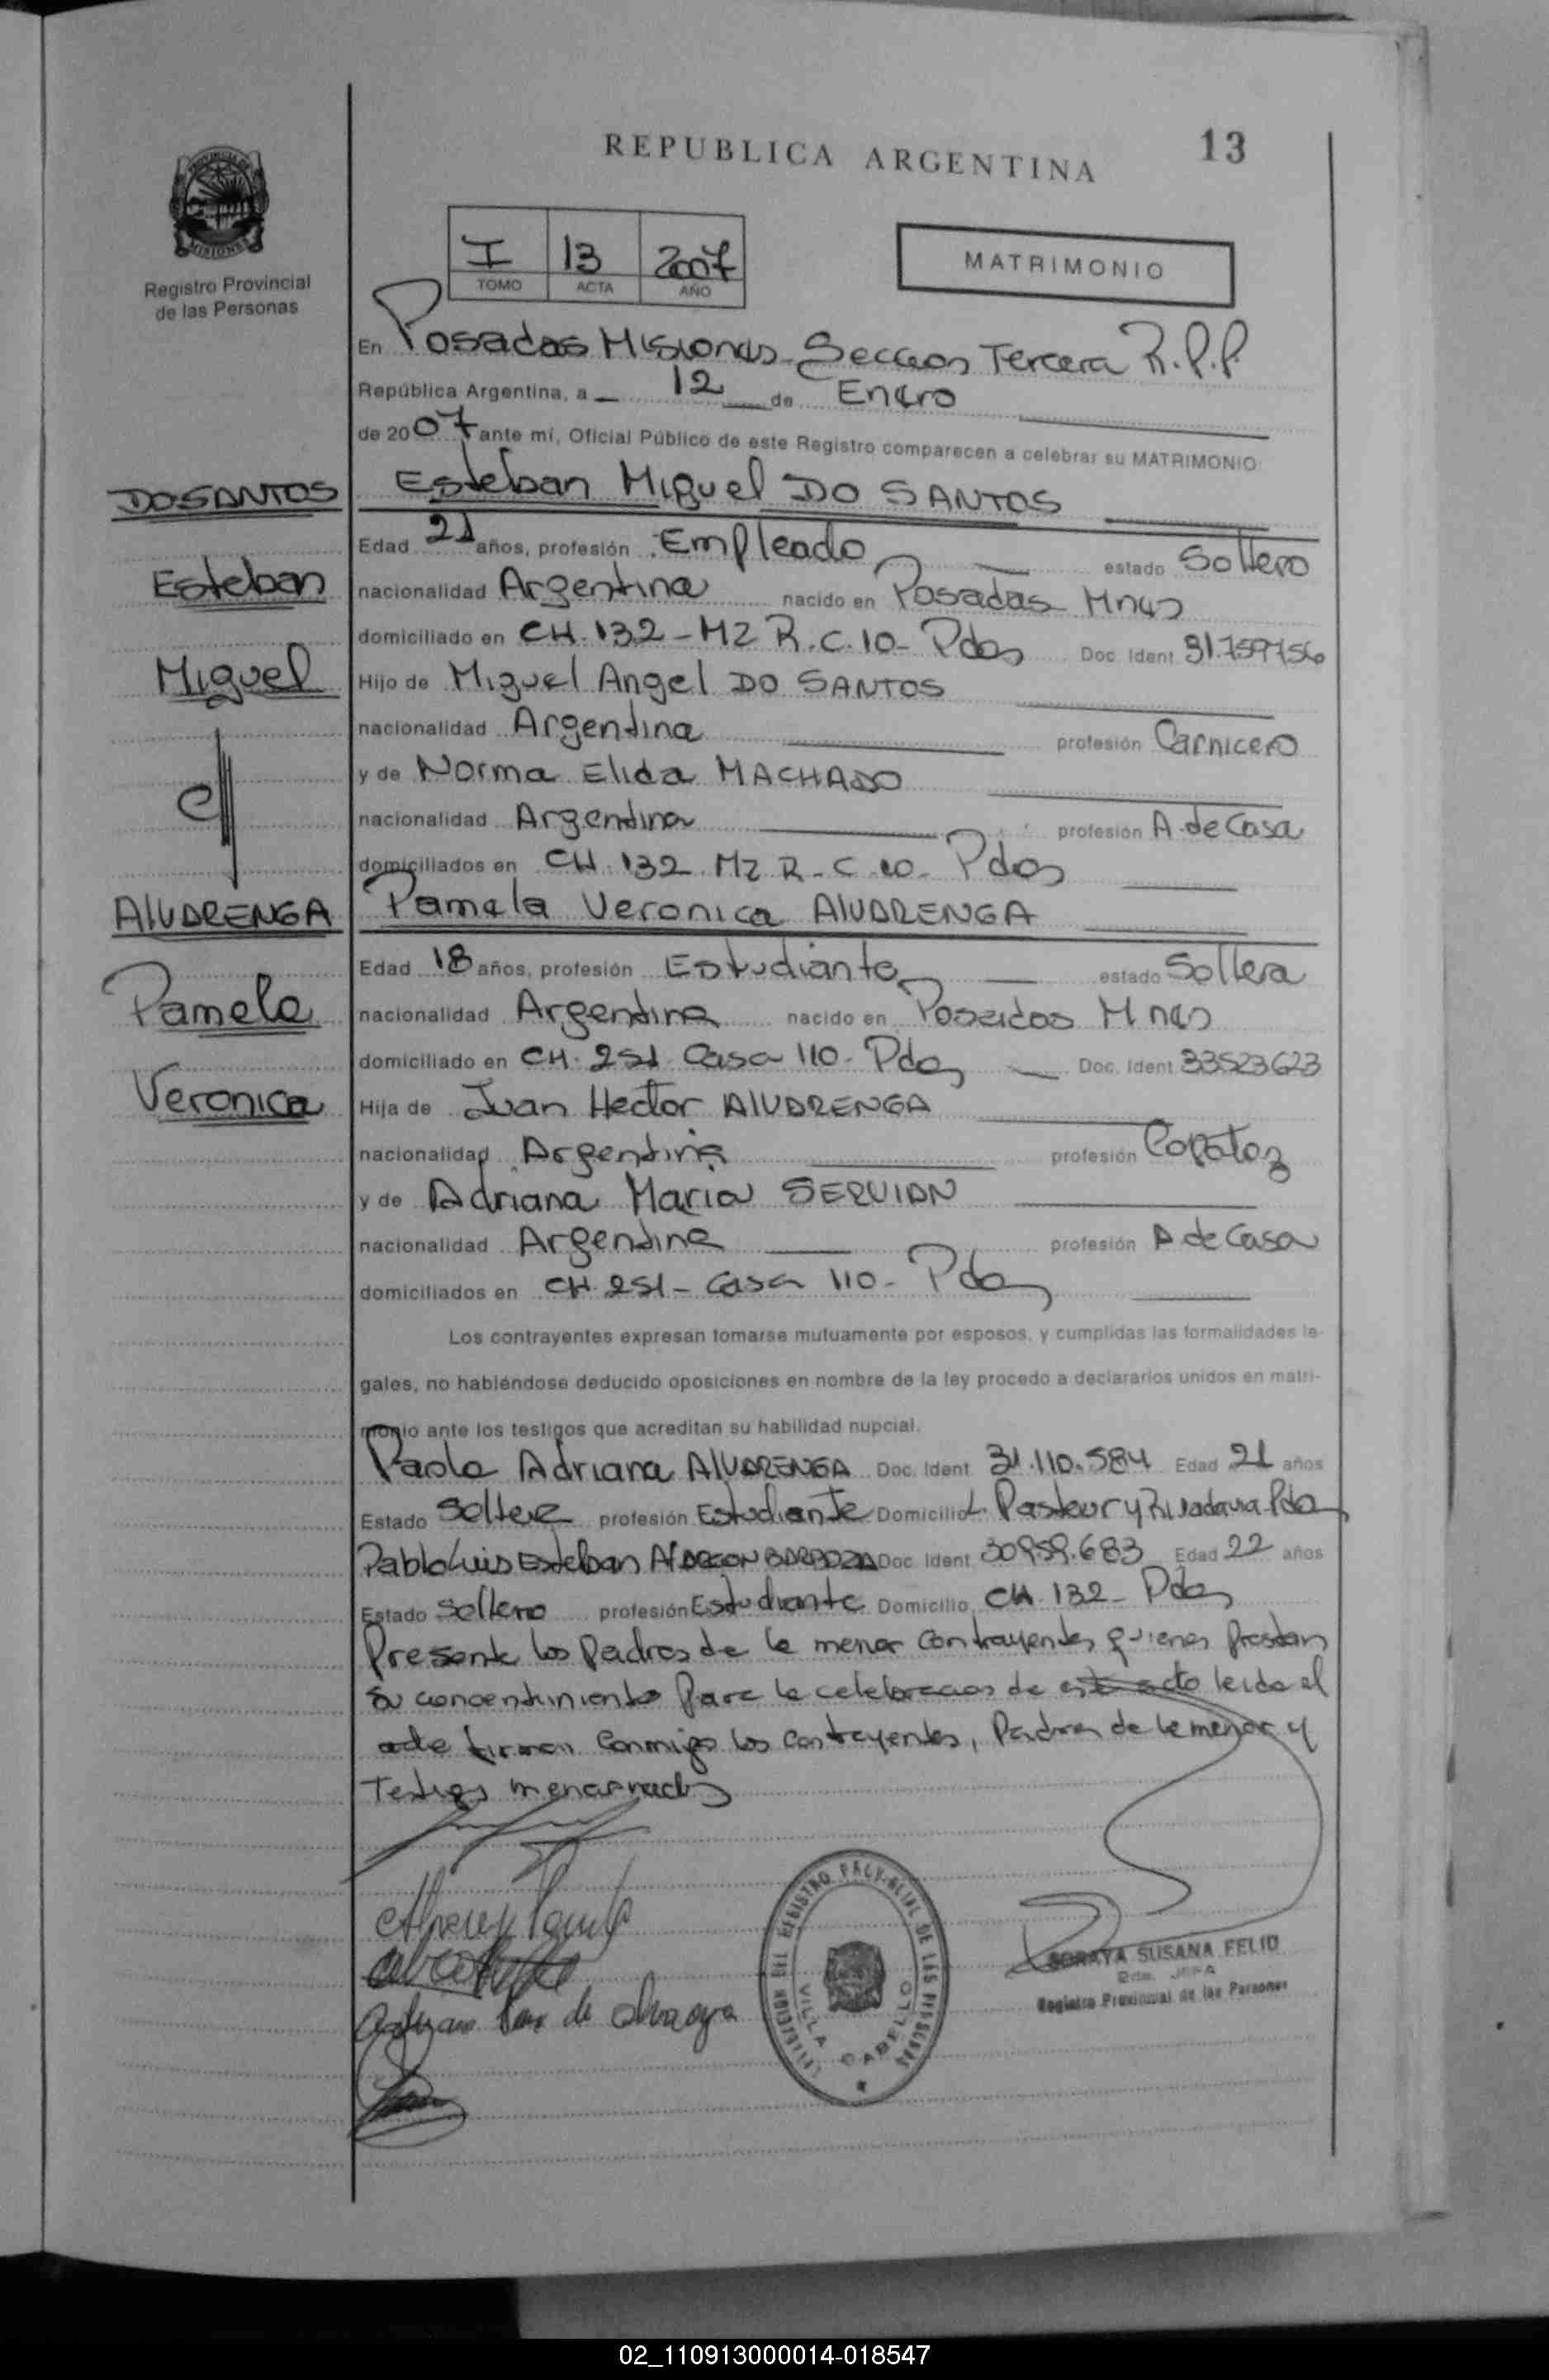 REPUBLICA ARGENTINA
13
PROVINCIA DE
MISIONES
Registro Provincial
de las Personas
I 13 2007
TOMO ACTA AÑO
MATRIMONIO
En Posadas Misiones Seccion Tercera R.P.P.
República Argentina, a 12 de Enero
de 2007 ante mí, Oficial Público de este Registro comparecen a celebrar su MATRIMONIO
DO SANTOS
Esteban Miguel DO SANTOS
Edad 21 años, profesión Empleado estado Soltero
Esteban
nacionalidad Argentina nacido en Posadas Mnes
domiciliado en CH. 132 - MZ R. C. 10 - Pdas Doc. Ident 31.759756
Miguel
Hijo de Miguel Angel DO SANTOS
nacionalidad Argentina profesión Carnicero
y de Norma Elida MACHADO
nacionalidad Argentina profesión A. de Casa
domiciliados en CH. 132 MZ R - C 10 - Pdas
AlVARENGA
Pamela Veronica AlVARENGA
Edad 18 años, profesión Estudiante estado Soltera
Pamela
nacionalidad Argentina nacido en Posadas Mnes
domiciliado en CH. 251 Casa 110 - Pdas Doc. Ident 33523623
Veronica
Hija de Juan Hector AlVARENGA
nacionalidad Argentina profesión Capataz
y de Adriana Maria SERVIAN
nacionalidad Argentina profesión A de Casa
domiciliados en CH. 251 - Casa 110 - Pdas
Los contrayentes expresan tomarse mutuamente por esposos, y cumplidas las formalidades le-
gales, no habiéndose deducido oposiciones en nombre de la ley procedo a declararlos unidos en matri-
monio ante los testigos que acreditan su habilidad nupcial.
Paola Adriana AlVARENGA Doc. Ident 31.110.584 Edad 21 años
Estado Soltera profesión Estudiante Domicilio L. Pasteur y Rivadavia Pdas
Pablo Luis Esteban AlARCON BARBOZA Doc. Ident 30959.683 Edad 22 años
Estado Soltero profesión Estudiante Domicilio CH. 132 - Pdas
Presente los Padres de la menor Contrayentes quienes prestan
su concentimiento para la celebracion de este acto leida el
acta firman Conmigo los Contrayentes, Padres de la menor y
Testigos menarnados
DEL REGISTRO PROVINCIAL DE LAS PERSONAS
VILLA CABELLO
SORAYA SUSANA FELID
JEFA
Registro Provincial de las Personas
02_110913000014-018547